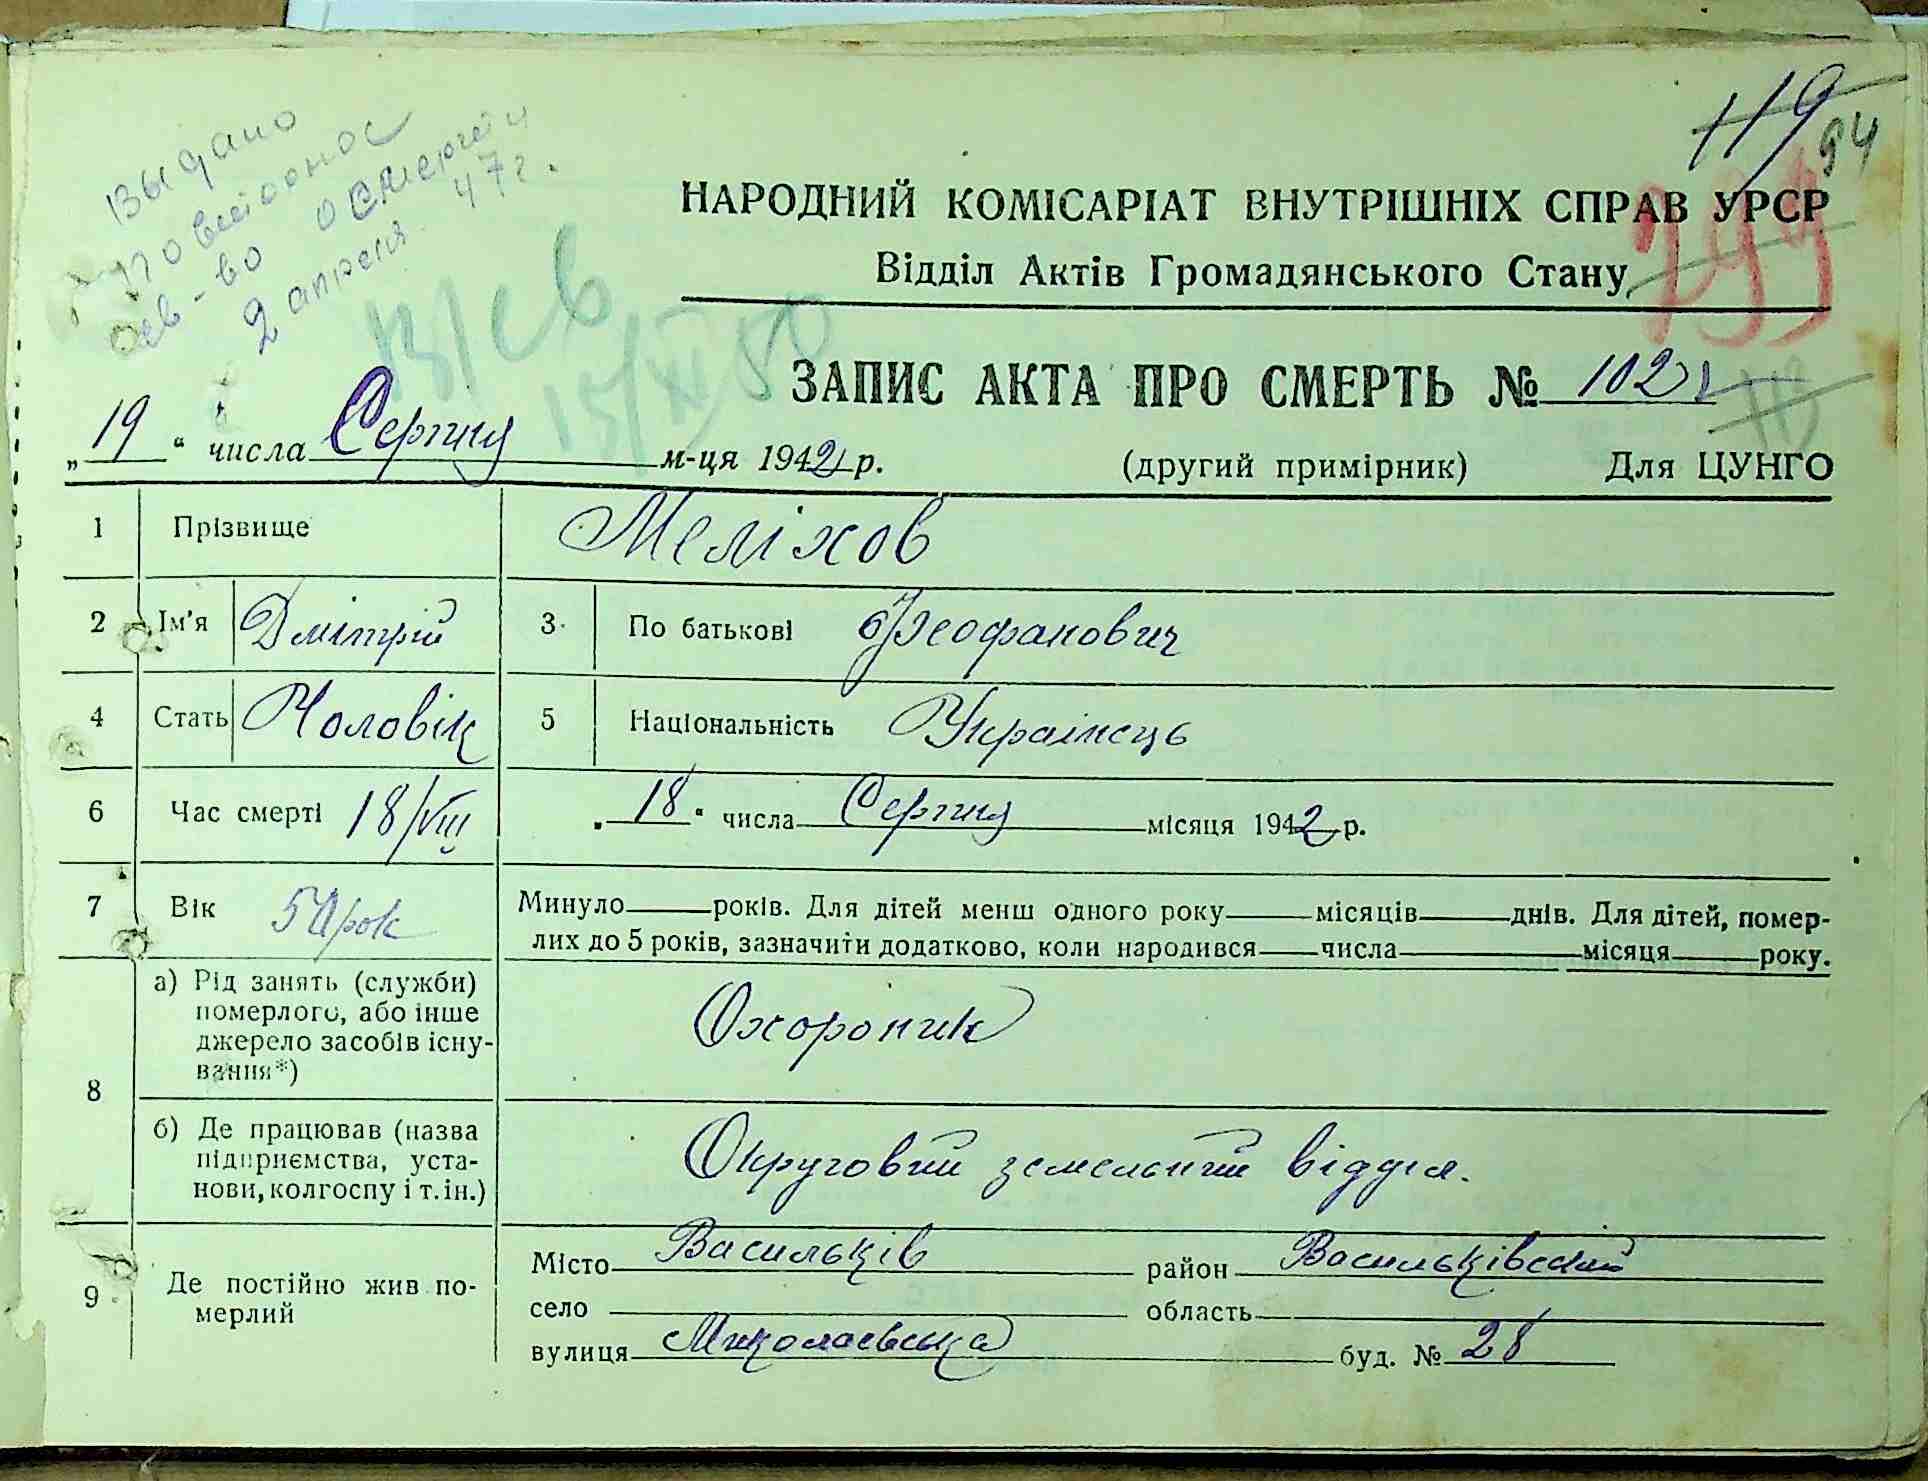 Выдано
повтороное
св-во о смерти
2 апреля 47 г.
119
94
299
НАРОДНИЙ КОМІСАРІАТ ВНУТРІШНІХ СПРАВ УРСР
Відділ Актів Громадянського Стану
В/св
15/XI 50
ЗАПИС АКТА ПРО СМЕРТЬ № 102
„19“ числа Серпня м-ця 1942 р. (другий примірник) Для ЦУНГО
1 Прізвище Меліхов
2 Ім'я Дмітрій 3 По батькові Феофанович
4 Стать Чоловік 5 Національність Українець
6 Час смерті 18/VIII „18“ числа Серпня місяця 1942 р.
7 Вік 54 рок Минуло років. Для дітей менш одного року місяців днів. Для дітей, помер-
лих до 5 років, зазначити додатково, коли народився числа місяця року.
8 а) Рід занять (служби)
померлого, або інше
джерело засобів існу-
вання*)
Охороник
б) Де працював (назва
підприємства, уста-
нови, колгоспу і т. ін.)
Округовий земельний відділ.
9 Де постійно жив по-
мерлий
Місто Васильків район Васильківский
село область
вулиця Миколаевська буд. № 28